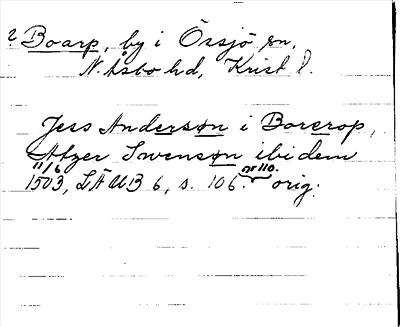 ? Boarp, by i Örsjö sn,
N. Åsbo hd, Krist l.
Jess Anderson i Borerop,
Atzer Swenson ibidem
11/6 nr 110.
1503, LÄUB 6, s. 106. orig.